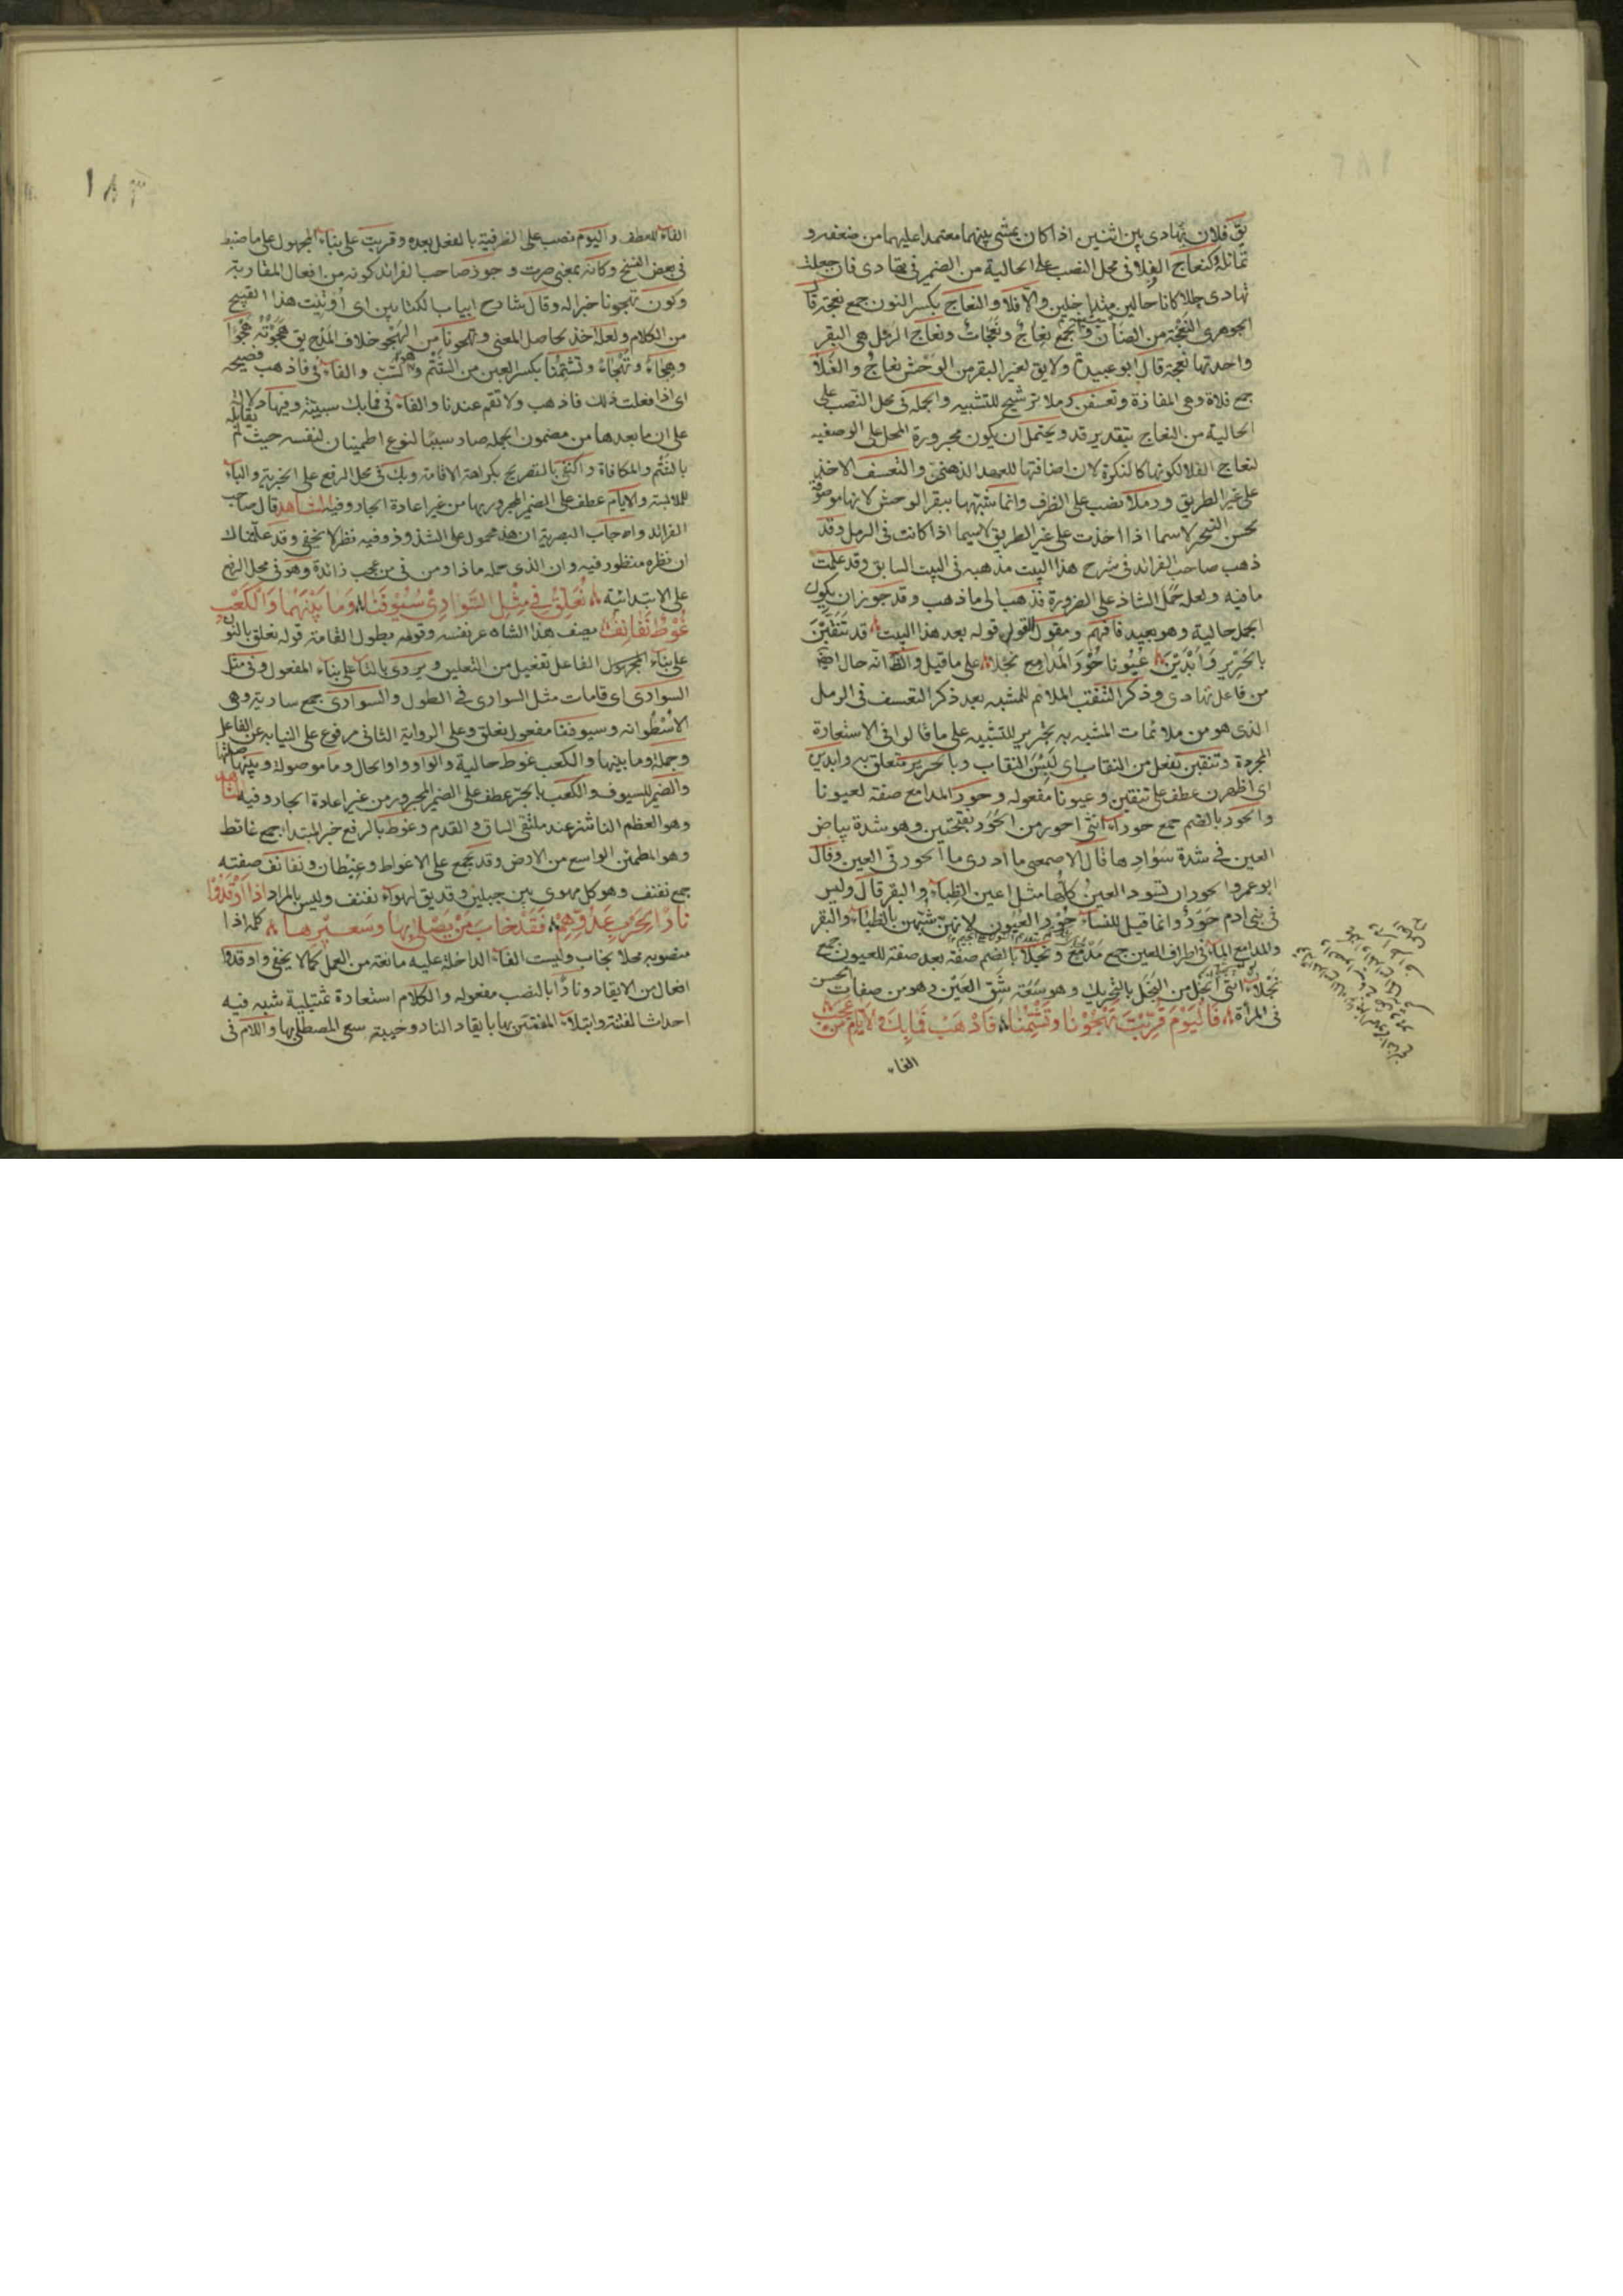 يق فلان يهادى بين اثنين اذا كان يمشى بينهما معتمدا عليهما من ضعفه و
تمايله وكنعاج الفلا فى محل النصب على الحالية من الضمير فى تهادى فان جعلت
تهادى حالا كانا حالين متداخلين والا فلا والنعاج بكسر النون جمع نعجة قال
الجوهرى النعجة من الضان والجمع نعاج ونعجات ونعاج الرمل هى البقر
واحدتها نعجة قال ابو عبيد ولا يق لغير البقر من الوحش نعاج والفلا
جمع فلاة وهى المفازة وتعسفن رملا ترشيح للتشبيه والجملة فى محل النصب على
الحالية من النعاج بتقدير قد ويحتمل ان يكون مجرورة المحل على الوصفيه
لنعاج الفلا لكونها كالنكرة لان اضافتها للعهد الذهنى والتعسف الاخذ
على غير الطريق ورملا نصب على الظرف وانما شبهها ببقر الوحش لانها موصوفة
بحسن التبختر لا سيما اذا اخذت على غير الطريق لاسيما اذا كانت فى الرمل وقد
ذهب صاحب الفرائد فى شرح هذا البيت مذهبه فى البيت السابق وقد علمت
ما فيه ولعله حمل الشاذ على الضرورة فذهب الى ما ذهب وقد جوز ان يكون
الجمل حالية وهو بعيد فافهم ومقول القول قوله بعد هذا البيت قد تنقبن
بالحرير وابدين عيونا حور المدامع نجلا على ما قيل والظ انه حال ايضا
من فاعل تهادى وذكر التنقب الملائم للمشبه بعد ذكر التعسف فى الرمل
الذى هو من ملائمات المشبه به تجريد للتشبيه على ما قالوا فى الاستعارة
المجردة وتنقبن تفعل من النقاب اى لبس النقاب وبالحرير متعلق به وابدين
اى اظهرن عطف على تنقبن وعيونا مفعوله وحور المدامع صفة لعيونا
والحور بالضم جمع حوراء انثى احور من الحور بفتحتين وهو شدة بياض
العين فى شدة سوادها قال الاصمعى ما ادرى ما الحور فى العين وقال
ابو عمرو الحور ان تسود العين كلها مثل اعين الظباء والبقر قال وليس
فى بنى ادم حور وانما قيل للنساء حور العيون لانهن شبهن بالظباء والبقر
والمدامع المآقى اطراف العين جمع مدمع ونجلا بالضم صفة بعد صفة للعيون جمع
نجلاء انثى انجل من النجل بالتحريك وهو سعة شق العين وهو من صفات الحسن
فى المرأة فاليوم قربت تهجونا وتشتمنا فاذهب فما بك والايام من عجب
الفاء
١٨٣
الفاء للعطف واليوم نصب على الظرفية بالفعل بعده وقربت على بناء المجهول على ما ضبط
فى بعض النسخ وكانه بمعنى صرت وجوز صاحب الفرائد كونه من افعال المقاربة
وكون تهجونا خبرا له وقال شارح ابيات الكتابين اى اوتيت هذا القبيح
من الكلام ولعله اخذ بحاصل المعنى وتهجونا من الهجو خلاف المدح يق هجوته هجوا
وهجاء وتهجاء وتشتمنا بكسر العين من الشتم وهو السب والفاء فى فاذهب فصيحه
اى اذا فعلت ذلك فاذهب ولا تقم عندنا والفاء فى فما بك سببية وفيها دلالة
على ان ما بعدها من مضمون الجملة صار سببا لنوع اطمينان لنفسه حيث لم يقابله
بالشتم والمكافاة واكتفى بالتصريح بكراهة الاقامة وبك فى محل الرفع على الخبرية والباء
للملابسة والايام عطف على الضمير المجرور بها من غير اعادة الجار وفيه الشاهد قال صاحب
الفرائد واه جاب البصرية ان هذ محمول على الشذوذ وفيه نظر لا يخفى وقد علمناك
ان نظره منظور فيه وان الذى حمله ماذا ومن فى من عجب زائدة وهو فى محل الرفع
على الابتدائية نعلق فى مثل السوارى سيوفنا وما بينها والكعب
غوط نفانف يصف هذا الشاعر نفسه وقومه بطول القامة قوله نعلق بالنون
على بناء الفاعل تفعيل من التعليق ويروى بالتاء على بناء المفعول وفى مثل
السوارى اى قامات مثل السوارى فى الطول والسوارى جمع سارية وهى
الاسطوانه وسيوفنا مفعول نعلق وعلى الرواية الثانى مرفوع على النيابة عن الفاعل
وجملة وما بينها والكعب غوط حالية والواو واو الحال وما موصولة وبينها صلتها
والضمير للسيوف والكعب بالجر عطف على الضمير المجرور من غير اعادة الجار وفيه الشاهد
وهو العظم الناشز عند ملتقى الساق والقدم وغوط بالرفع خبر المبتدا جمع غائط
وهو المطمئن الواسع من الارض وقد يجمع على الاغواط وغيطان ونفانف صفته
جمع نفنف وهو كل مهوى بين جبلين وقد يق لهواء نفنف وليس بالمراد اذا اوقدوا
نارا لحرب عدوهم فقد خاب من يصلى بها وسعيرها كلمة اذا
منصوبه محلا بخاب وليست الفاء الداخلة عليه مانعة من العمل كما لا يخفى واوقدوا
افعال من الايقاد ونارا بالنصب مفعوله والكلام استعارة تمثيلية شبه فيه
احداث الفتنة وابتلاء المفتتن بها بايقاد النار وخيبة سعى المصطلى بها واللام فى